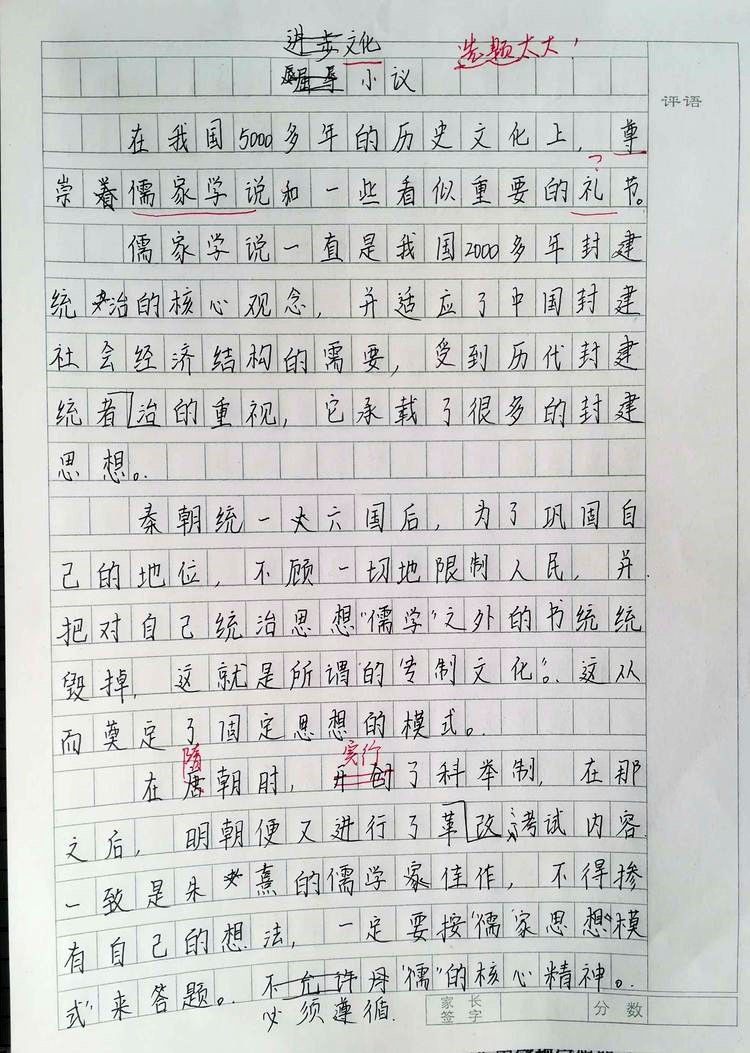 进步文化 选题太大!
小议
评语
在我国5000多年的历史文化上，尊
崇着儒家学说和一些看似重要的礼节。
儒家学说一直是我国2000多年封建
统治的核心观念，并适应了中国封建
社会经济结构的需要，受到历代封建
统者治的重视，它承载了很多的封建
思想。
秦朝统一六国后，为了巩固自
己的地位，不顾一切地限制人民，并
把对自己统治思想"儒学"之外的书统统
毁掉，这就是所谓的"专制文化"。这从
而奠定了固定思想的模式。
隋 实行
在唐朝时，开创了科举制，在那
之后，明朝便又进行了革改，考试内容
一致是朱熹的儒学家佳作，不得掺
有自己的想法，一定要按"儒家思想"模
式"来答题。不允许用"儒"的核心精神。
必须遵循
家长签字
分数